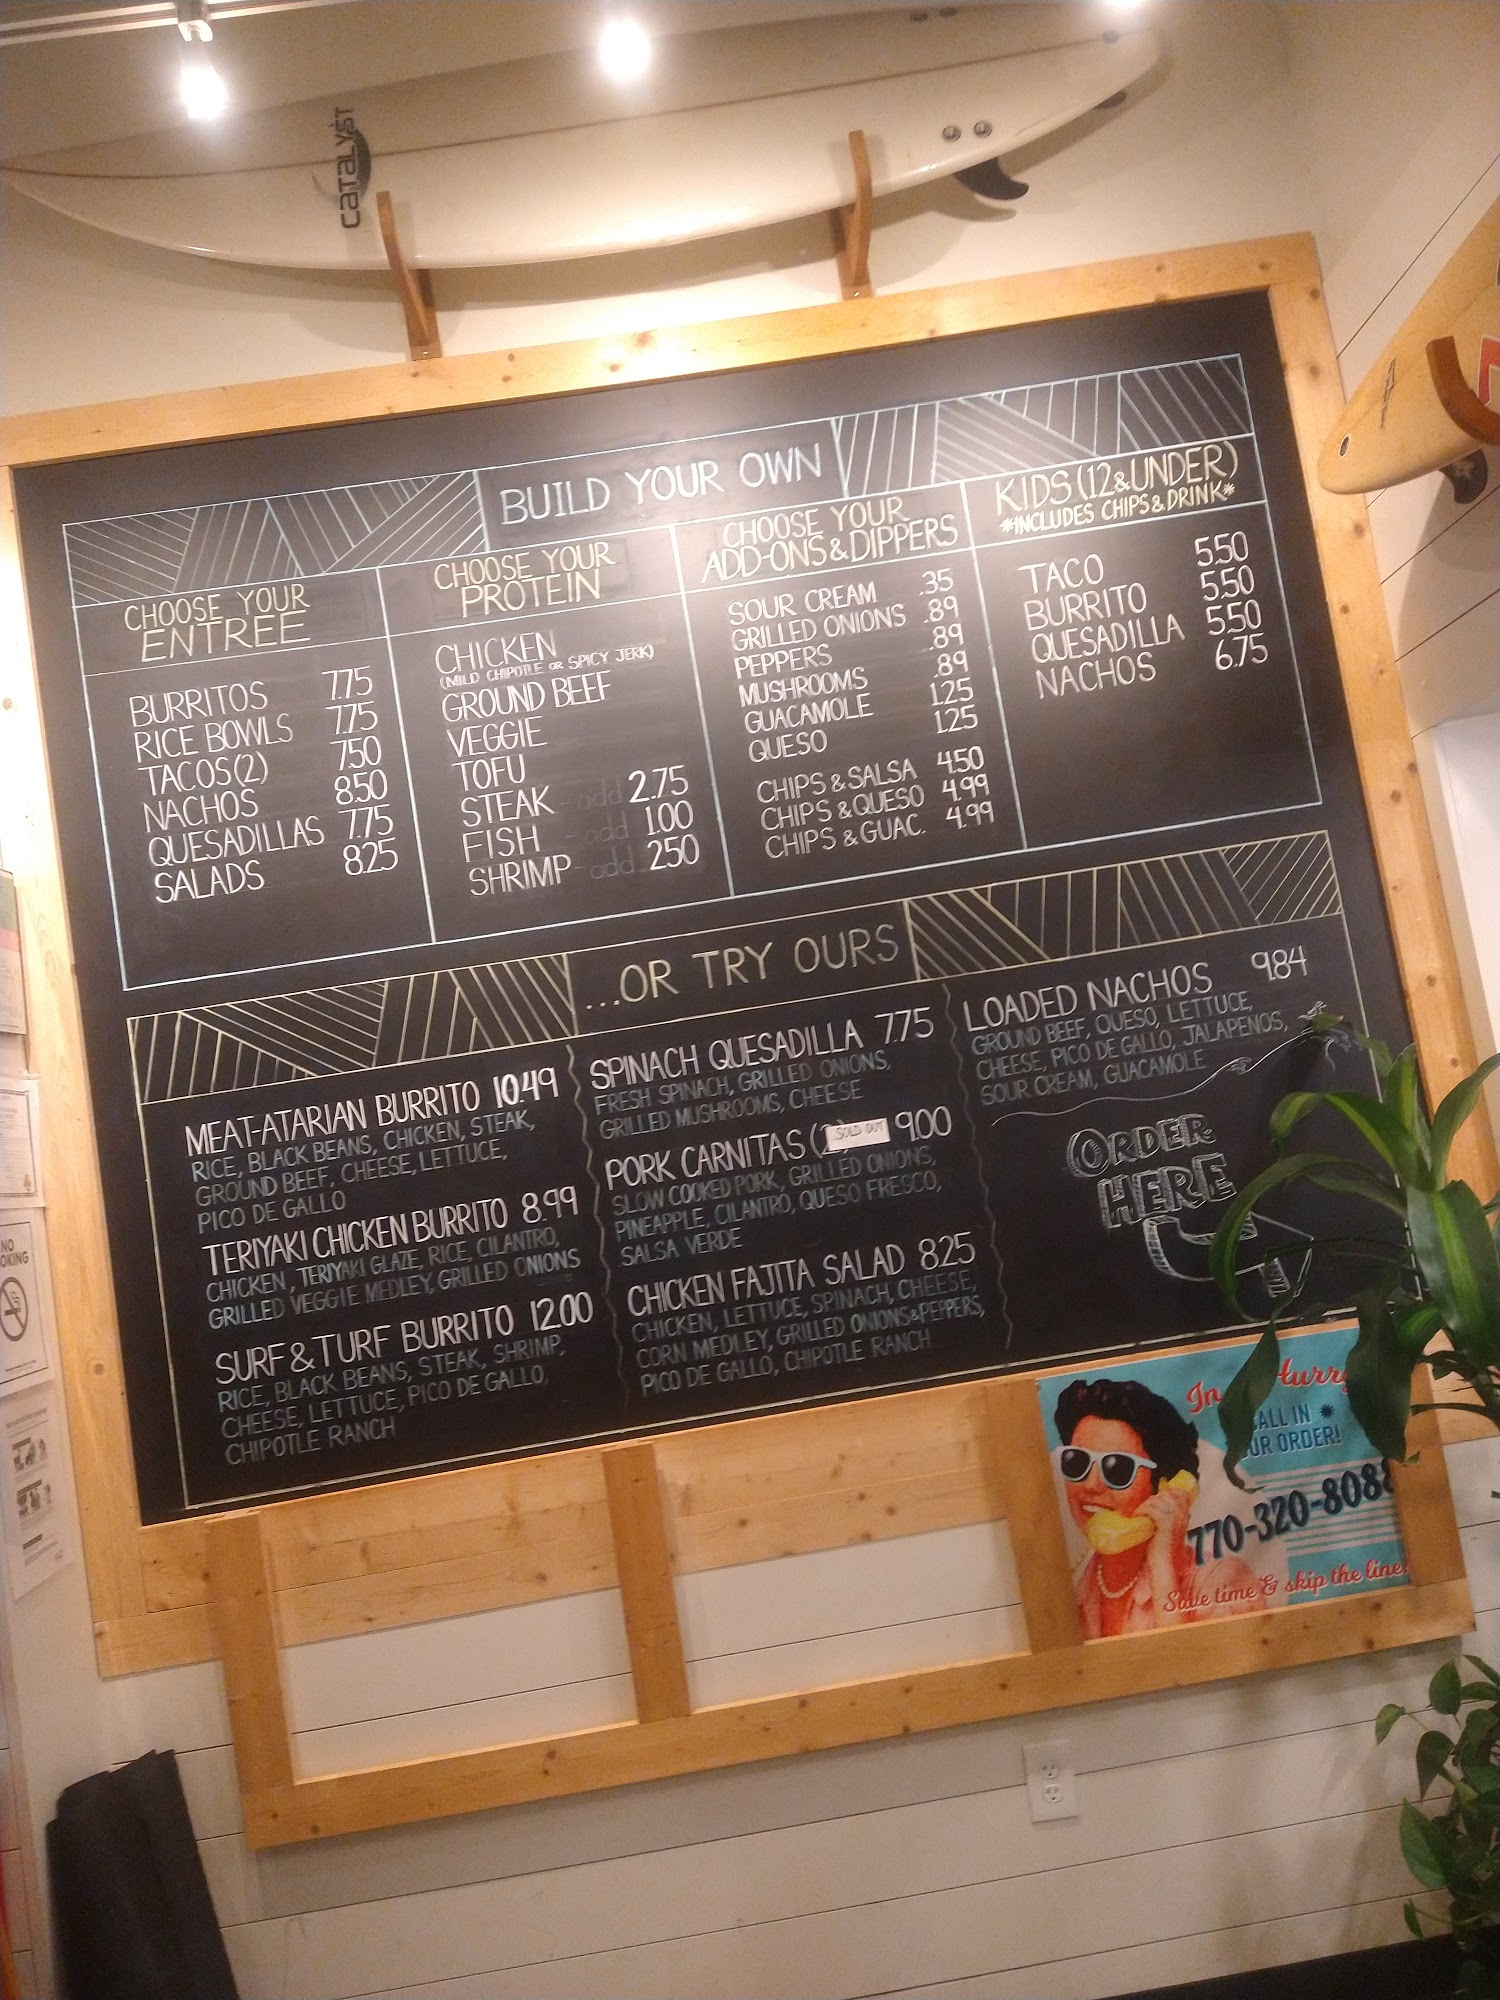 CATALYST
BUILD YOUR OWN
CHOOSE YOUR
ENTREE
BURRITOS 7.75
RICE BOWLS 7.75
TACOS (2) 7.50
NACHOS 8.50
QUESADILLAS 7.75
SALADS 8.25
CHOOSE YOUR
PROTEIN
CHICKEN
(MILD CHIPOTLE OR SPICY JERK)
GROUND BEEF
VEGGIE
TOFU
STEAK - add 2.75
FISH - add 1.00
SHRIMP - add 2.50
CHOOSE YOUR
ADD-ONS & DIPPERS
SOUR CREAM .35
GRILLED ONIONS .89
PEPPERS .89
MUSHROOMS .89
GUACAMOLE 1.25
QUESO 1.25
CHIPS & SALSA 4.50
CHIPS & QUESO 4.99
CHIPS & GUAC. 4.99
KIDS (12 & UNDER)
*INCLUDES CHIPS & DRINK*
TACO 5.50
BURRITO 5.50
QUESADILLA 5.50
NACHOS 6.75
...OR TRY OURS
MEAT-ATARIAN BURRITO 10.49
RICE, BLACK BEANS, CHICKEN, STEAK,
GROUND BEEF, CHEESE, LETTUCE,
PICO DE GALLO
TERIYAKI CHICKEN BURRITO 8.99
CHICKEN, TERIYAKI GLAZE, RICE, CILANTRO,
GRILLED VEGGIE MEDLEY, GRILLED ONIONS
SURF & TURF BURRITO 12.00
RICE, BLACK BEANS, STEAK, SHRIMP,
CHEESE, LETTUCE, PICO DE GALLO,
CHIPOTLE RANCH
SPINACH QUESADILLA 7.75
FRESH SPINACH, GRILLED ONIONS,
GRILLED MUSHROOMS, CHEESE
PORK CARNITAS ( SOLD OUT 9.00
SLOW COOKED PORK, GRILLED ONIONS,
PINEAPPLE, CILANTRO, QUESO FRESCO,
SALSA VERDE
CHICKEN FAJITA SALAD 8.25
CHICKEN, LETTUCE, SPINACH, CHEESE,
CORN MEDLEY, GRILLED ONIONS & PEPPERS,
PICO DE GALLO, CHIPOTLE RANCH
LOADED NACHOS 9.84
GROUND BEEF, QUESO, LETTUCE,
CHEESE, PICO DE GALLO, JALAPENOS,
SOUR CREAM, GUACAMOLE
ORDER
HERE
In Hurry
CALL IN
OUR ORDER!
770-320-8088
Save time & skip the line.
NO
OKING